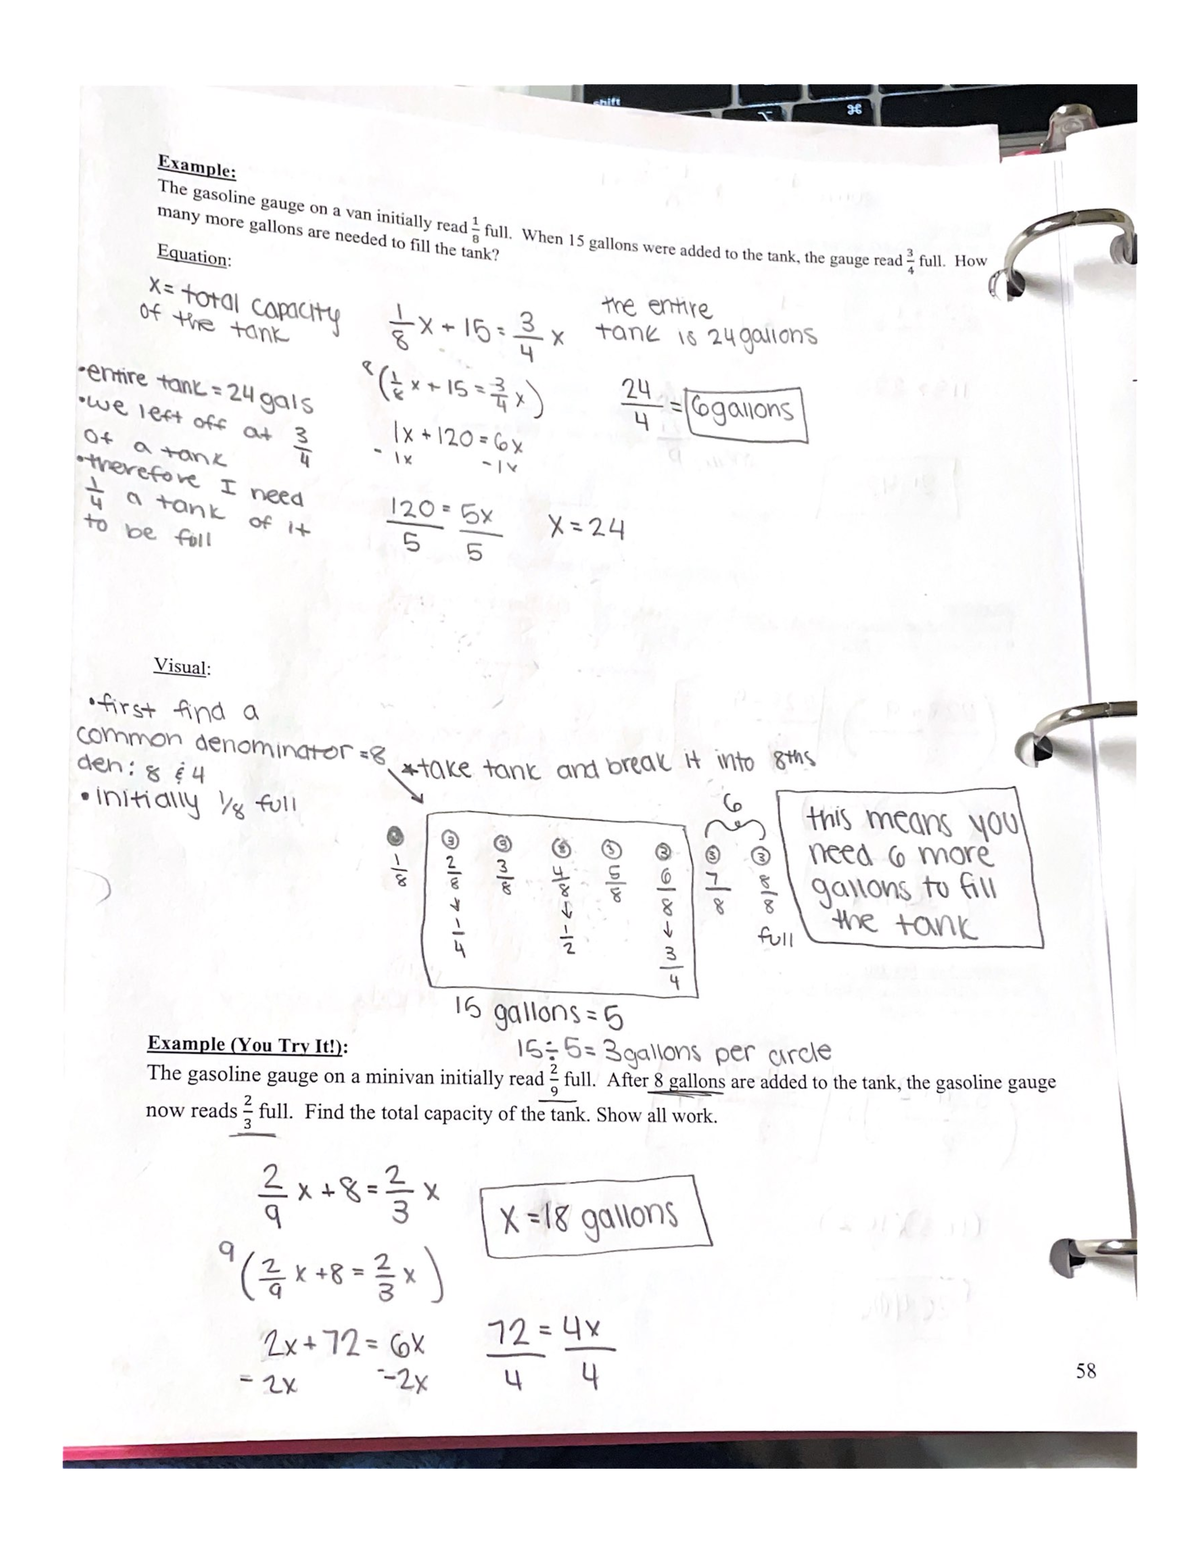 shift
⌥
⌘
Example:
The gasoline gauge on a van initially read 1/8 full. When 15 gallons were added to the tank, the gauge read 3/4 full. How
many more gallons are needed to fill the tank?
Equation:
x = total capacity
of the tank
1/8 x + 15 = 3/4 x
8(1/8 x + 15 = 3/4 x)
1x + 120 = 6x
- 1x -1x
120 = 5x
5 5
x = 24
the entire
tank is 24 gallons
24/4 = 6 gallons
•entire tank = 24 gals
•we left off at 3/4
of a tank
•therefore I need
1/4 a tank of it
to be full
Visual:
•first find a
common denominator = 8
den: 8 & 4
•initially 1/8 full
*take tank and break it into 8ths
6
3 3 3 3 3 3 3
1/8 2/8 3/8 4/8 5/8 6/8 7/8 8/8
↓ 1/4 ↓ 1/2 ↓ 3/4 full
this means you
need 6 more
gallons to fill
the tank
15 gallons = 5
15÷5 = 3 gallons per circle
Example (You Try It!):
The gasoline gauge on a minivan initially read 2/9 full. After 8 gallons are added to the tank, the gasoline gauge
now reads 2/3 full. Find the total capacity of the tank. Show all work.
2/9 x + 8 = 2/3 x
9(2/9 x + 8 = 2/3 x)
2x + 72 = 6x
- 2x -2x
72 = 4x
4 4
x = 18 gallons
58